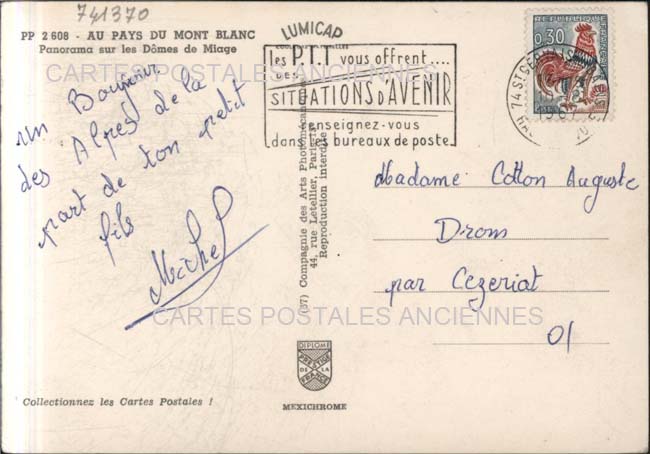 741370
PP 2 608 - AU PAYS DU MONT BLANC
Panorama sur les Dômes de Miage
LUMICAP
les P.T.T vous offrent....
des
SITUATIONS D'AVENIR
enseignez-vous
dans les bureaux de poste
REPUBLIQUE FRANCAISE
0,30
74 ST GERVAIS
CARTES POSTALES ANCIENNES
un Bonjour
des Alpes de la
part de ton petit
fils
Michel
(67) Compagnie des Arts Photomécaniques
44, rue Letellier, Paris
Reproduction interdite
Madame Cotton Auguste
Drom
par Cezeriat
01
CARTES POSTALES ANCIENNES
DIPLOME
PRESTIGE
DE LA
FRANCE
MEXICHROME
Collectionnez les Cartes Postales !